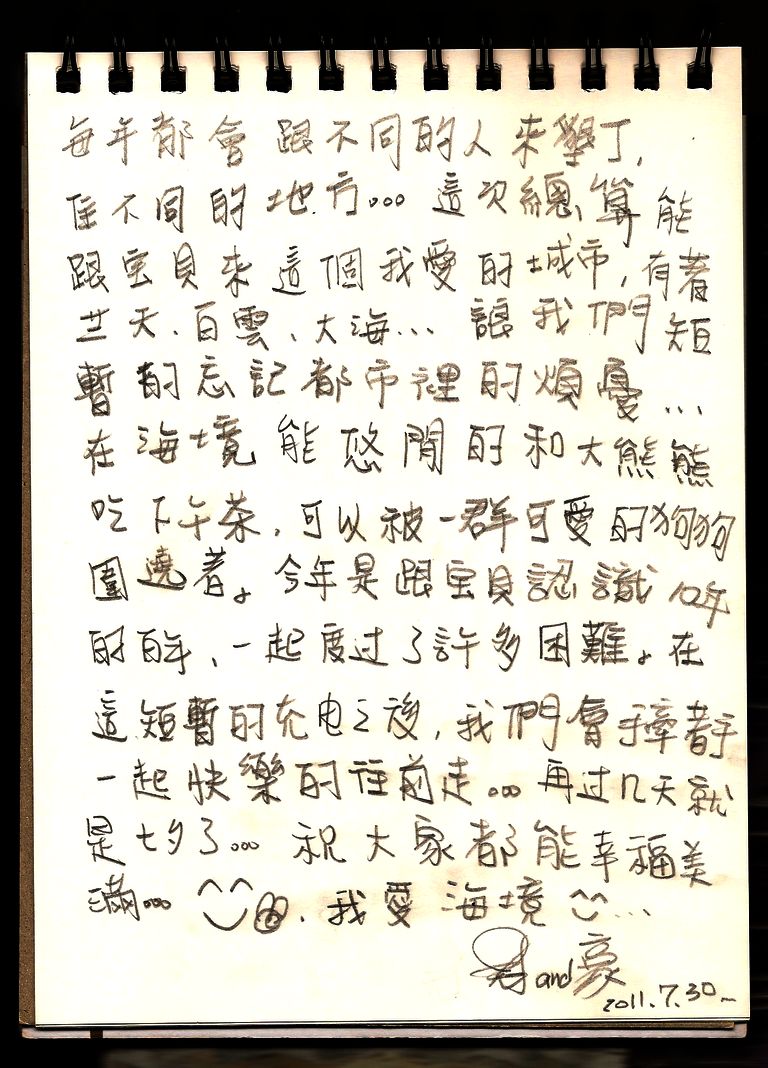 每年都會跟不同的人來墾丁,
住不同的地方... 這次總算能
跟宝貝來這個我愛的城市,有著
藍天、白雲、大海... 讓我們短
暫的忘記都市裡的煩憂...
在海境能悠閒的和大熊熊
吃下午茶,可以被一群可愛的狗狗
圍繞著。今年是跟宝貝認識10年
的百年、一起度过了許多困難。在
這短暫的充电之後,我們會手牽著手
一起快樂的往前走... 再过几天就
是七夕了... 祝大家都能幸福美
滿... 我愛海境 ...
and豪
2011.7.30